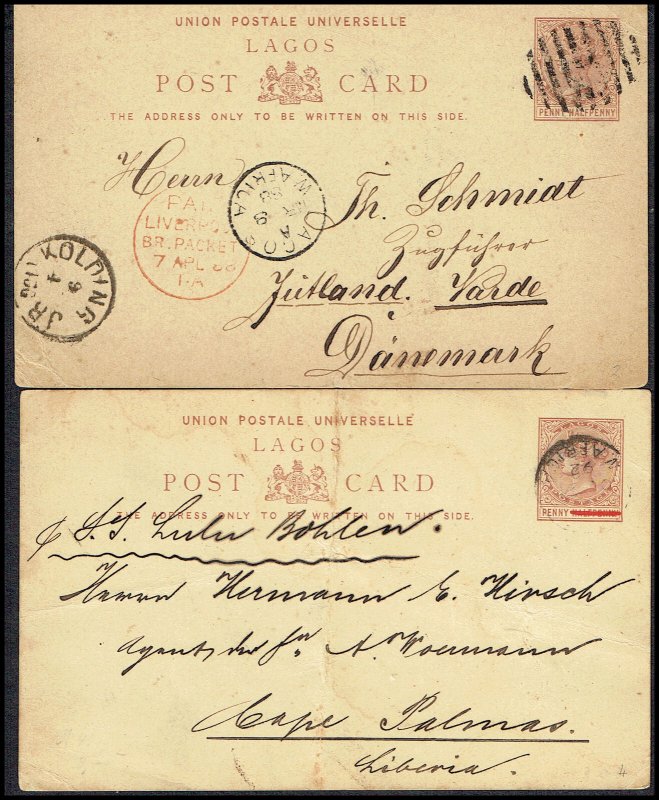 UNION POSTALE UNIVERSELLE
LAGOS
POST CARD
THE ADDRESS ONLY TO BE WRITTEN ON THIS SIDE.
PENNY HALFPENNY
Herrn
Th. Schmidt
Zugführer
Jütland. Varde
Dänemark
LAGOS
W AFRICA
PAI
LIVERPO
BR. PACKET
7 APL 88
1 A
KOLDING
2
UNION POSTALE UNIVERSELLE
LAGOS
POST CARD
THE ADDRESS ONLY TO BE WRITTEN ON THIS SIDE.
LAGOS
PENNY HALFPENNY
W AFRIC
92
p S. S. Lulu Bohlen.
Herrn Hermann E. Hirsch
Agent, der A. Woermann
Cape Palmas.
Liberia.
4